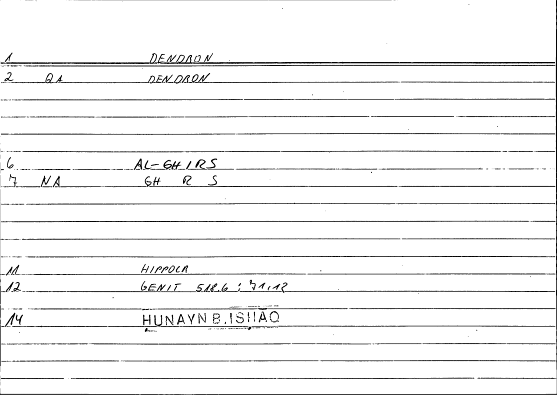 1 DENDRON
2 QA DENDRON
6 AL-GHIRS
7 NA GH R S
11 HIPPOCR
12 GENIT 518.6 : 71,12
14 HUNAYN B.ISHAQ